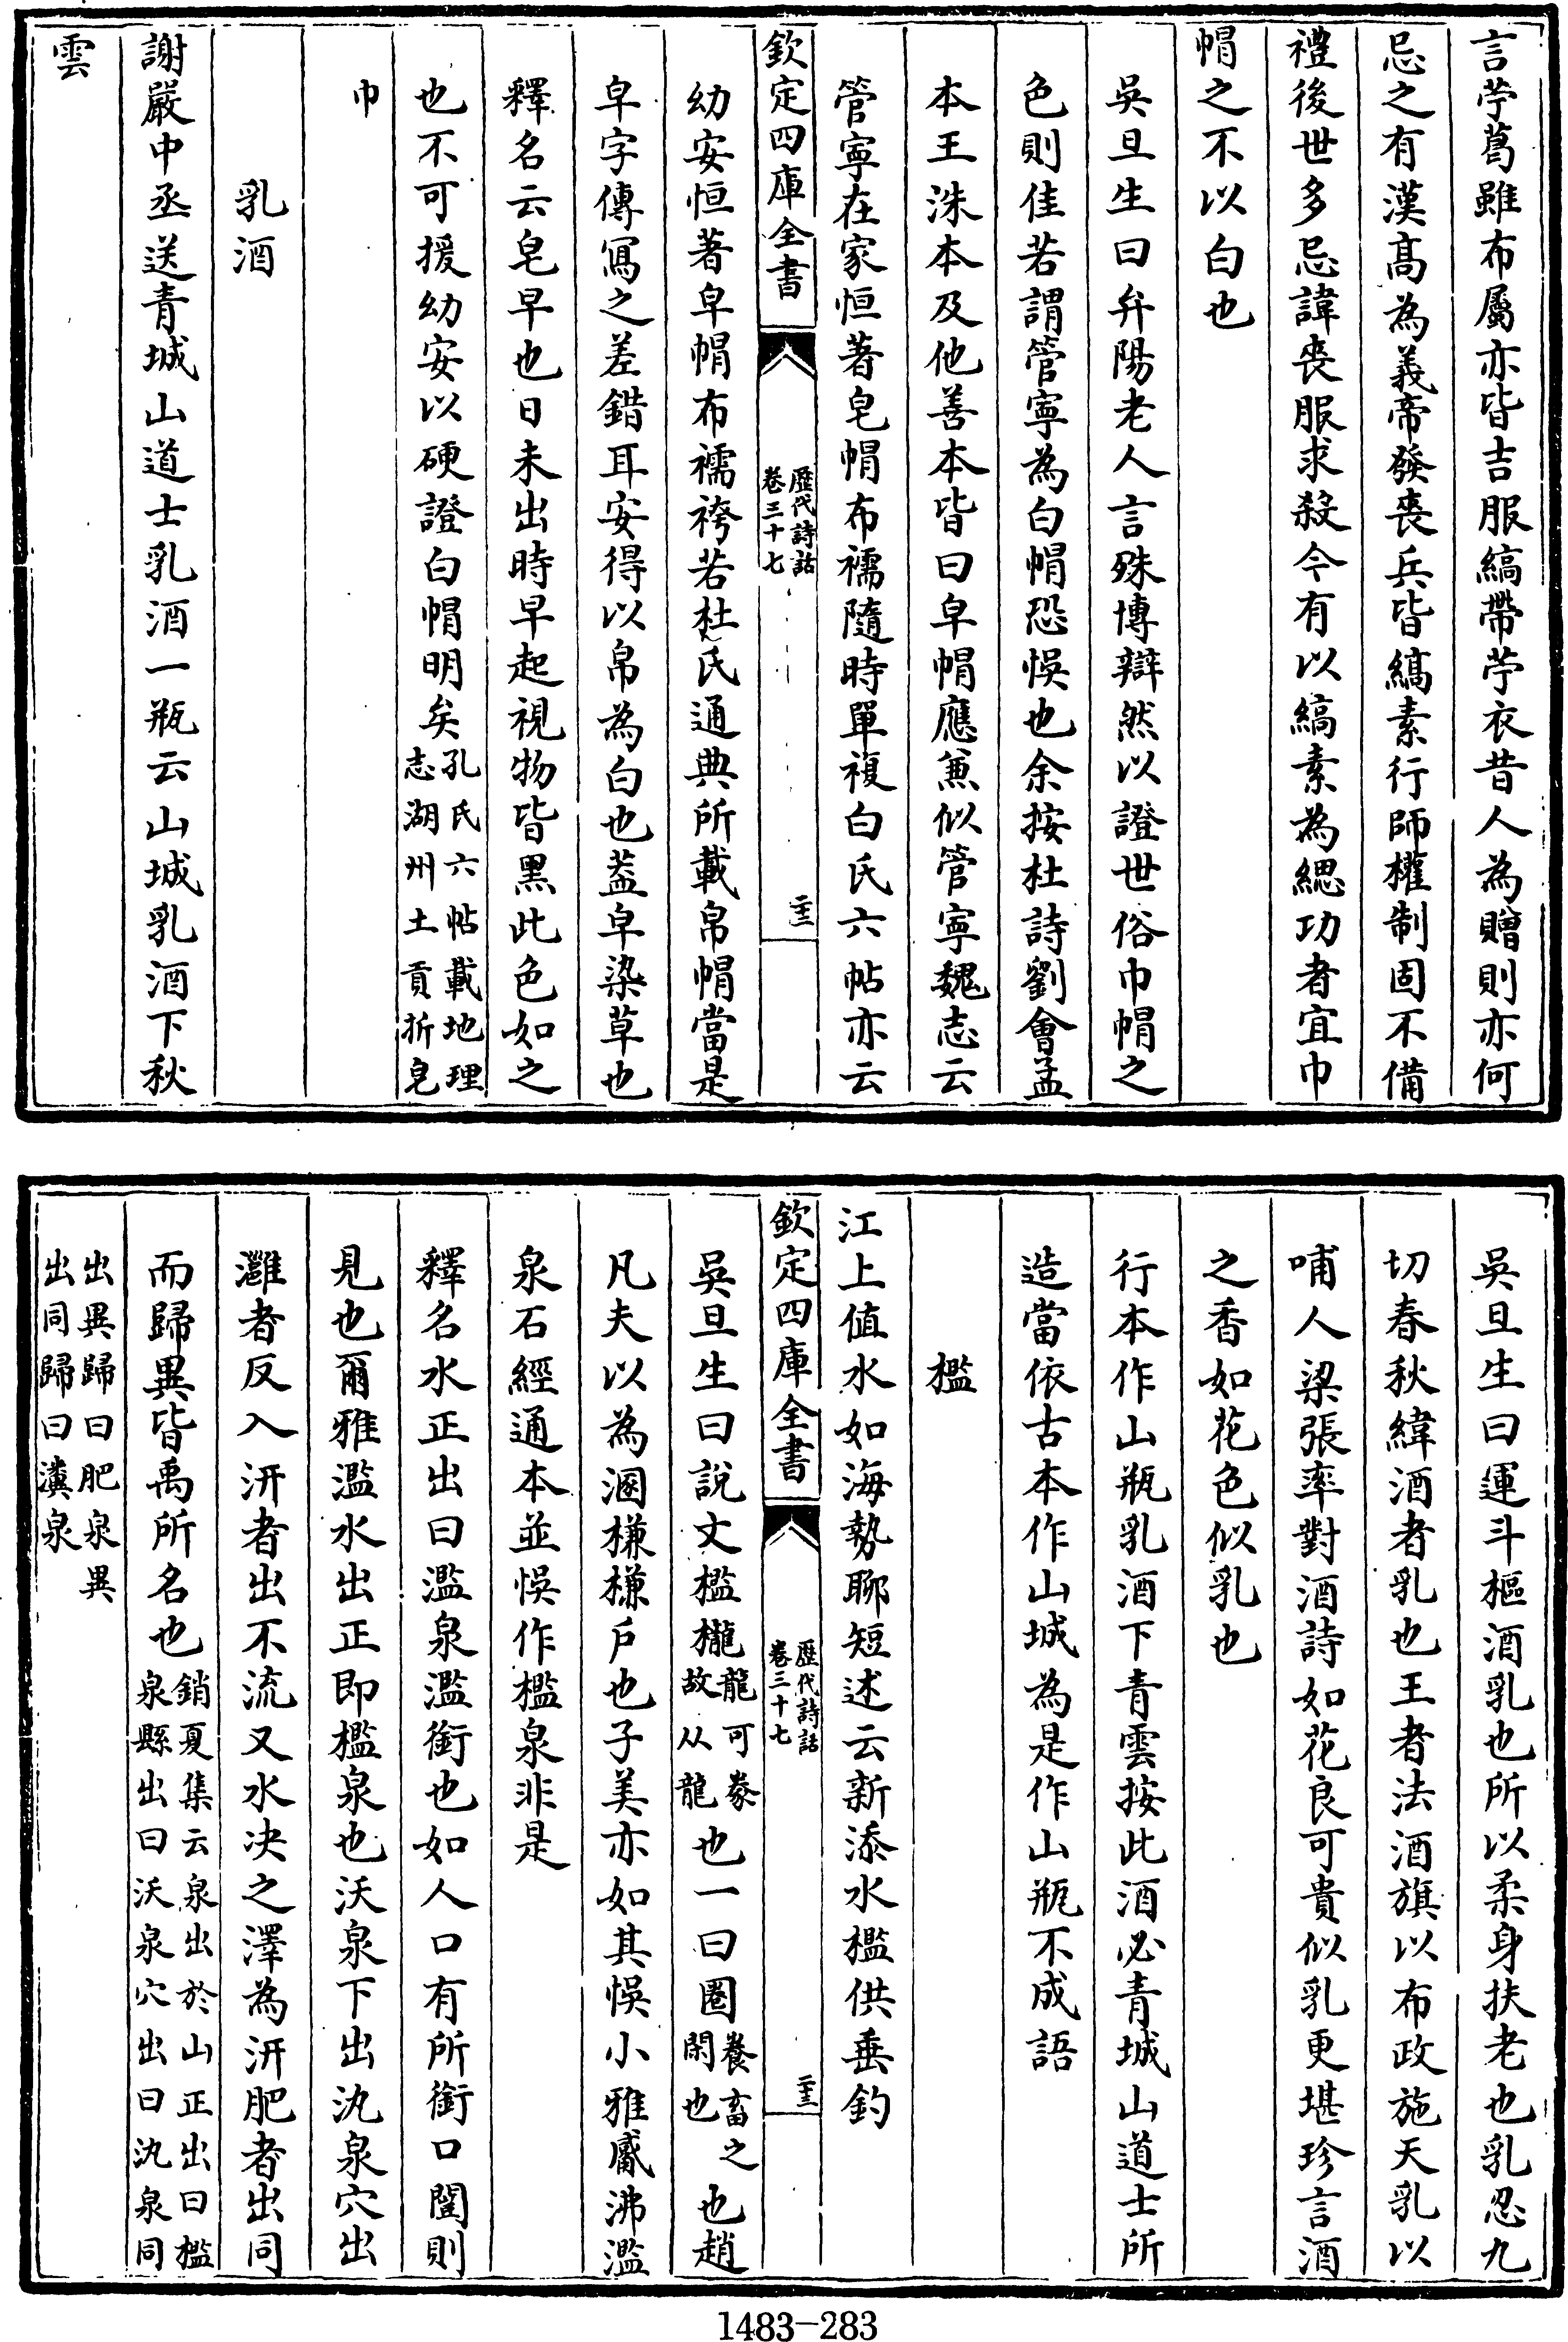 言苧葛雖布屬亦皆吉服縞帶苧衣昔人為贈則亦何
忌之有漢髙為義帝發喪兵皆縞素行師權制固不備
禮後世多忌諱喪服求殺今有以縞素為緦功者宜巾
帽之不以白也
吳旦生曰弁陽老人言殊博辯然以證世俗巾帽之
色則佳若謂管寧為白帽恐悞也余按杜詩劉會孟
本王洙本及他善本皆曰皁帽應兼似管寧魏志云
管寧在家恒著皂帽布襦隨時單複白氏六帖亦云
欽定四庫全書
歴代詩話
卷三十七
二十三
幼安恒著皁帽布襦袴若杜氏通典所載帛帽當是
皁字傳寫之差錯耳安得以帛為白也葢皁染草也
釋名云皂早也日未出時早起視物皆黑此色如之
也不可援幼安以硬證白帽明矣孔氏六帖載地理
志湖州土貢折皂
巾
乳酒
謝嚴中丞送青城山道士乳酒一瓶云山城乳酒下秋
雲
吳旦生曰運斗樞酒乳也所以柔身扶老也乳忍九
切春秋緯酒者乳也王者法酒旗以布政施天乳以
哺人梁張率對酒詩如花良可貴似乳更堪珍言酒
之香如花色似乳也
行本作山瓶乳酒下青雲按此酒必青城山道士所
造當依古本作山城為是作山瓶不成語
檻
江上值水如海勢聊短述云新添水檻供垂釣
欽定四庫全書
歴代詩話
卷三十七
二十三
吳旦生曰說文檻櫳龍可豢
故从龍也一曰圏養畜之
閑也也趙
凡夫以為溷槏槏户也子美亦如其悞小雅觱沸濫
泉石經通本並悞作檻泉非是
釋名水正出曰濫泉濫銜也如人口有所銜口闓則
見也爾雅濫水出正即檻泉也沃泉下出氿泉穴出
灉者反入汧者出不流又水决之澤為汧肥者出同
而歸異皆禹所名也銷夏集云泉出於山正出曰檻
泉縣出曰沃泉穴出曰氿泉同
出異歸曰肥泉異
出同歸曰瀵泉
1483-283